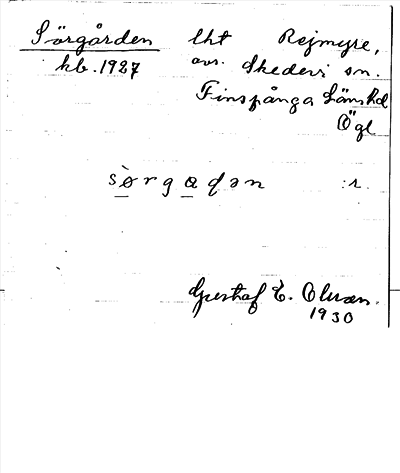 Sörgården lht Rejmyre,
kb. 1927 avs. Skedevi sn.
Finspånga Läns hd
Ögl
sørgaḍən :r.
Gustaf E. Olsson.
1930